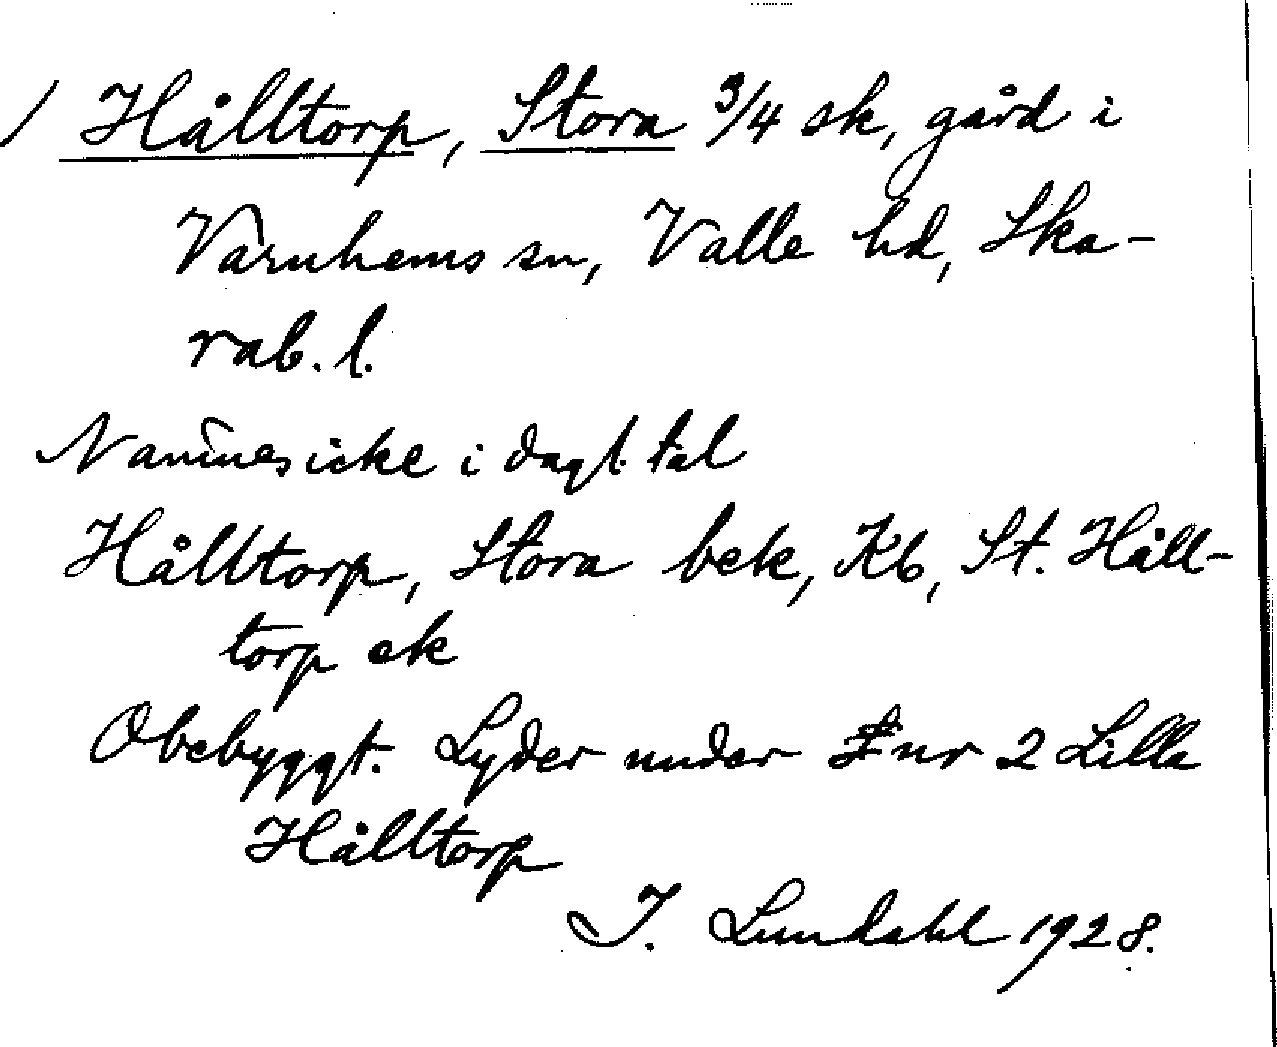 / Hålltorp, Stora 3/4 sk, gård i
Varnhems sn, Valle hd, Ska-
rab. l.
Namnes icke i dagl. tal
Hålltorp, Stora bek, Kb, St. Håll-
torp ek
Obebyggt. Lyder under nr 2 Lilla
Hålltorp
I. Lundahl 1928.